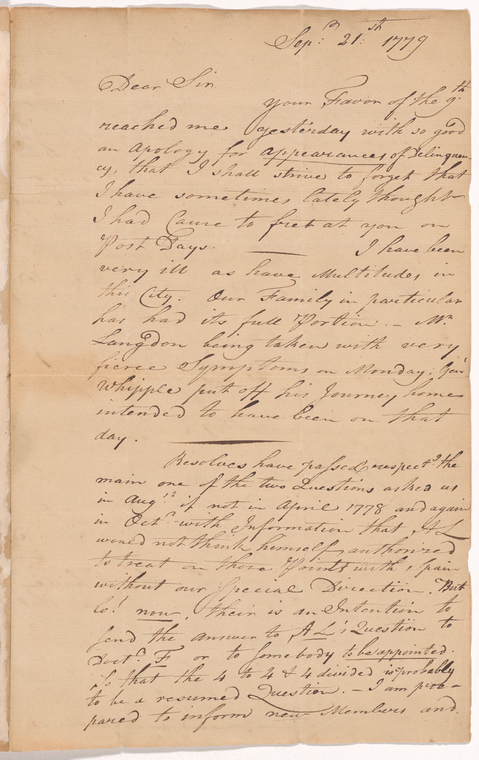 Sepr. 21.th 1779
Dear Sir
your Favor of the 9.th
reached me yesterday with so good
an apology for appearances of Delinquen-
cy, that I shall strive to forget that
I have sometimes lately thought
I had Cause to fret at you on
Post Days. — I have been
very ill as have Multitudes in
this City. Our Family in particular
has had its full Portion. — Mr.
Langdon being taken with very
fierce Symptoms on Monday. Gen
Whipple put off his Journey home
intended to have been on that
day. —
Resolves have passed respectg the
main one of the two Questions asked us
in Augst. if not in April 1778 and again
in Octr. with Information that AL
would not think himself authorized
to treat on those Points with Spain
without our special Direction. But
lo! now, their is an Intention to
send the answer to AL's Question to
Doctr. F. or to somebody to be appointed.
that the 4 to 4 & 4 divided is probably
to be a resumed Question. — I am pre-
pared to inform new Members and